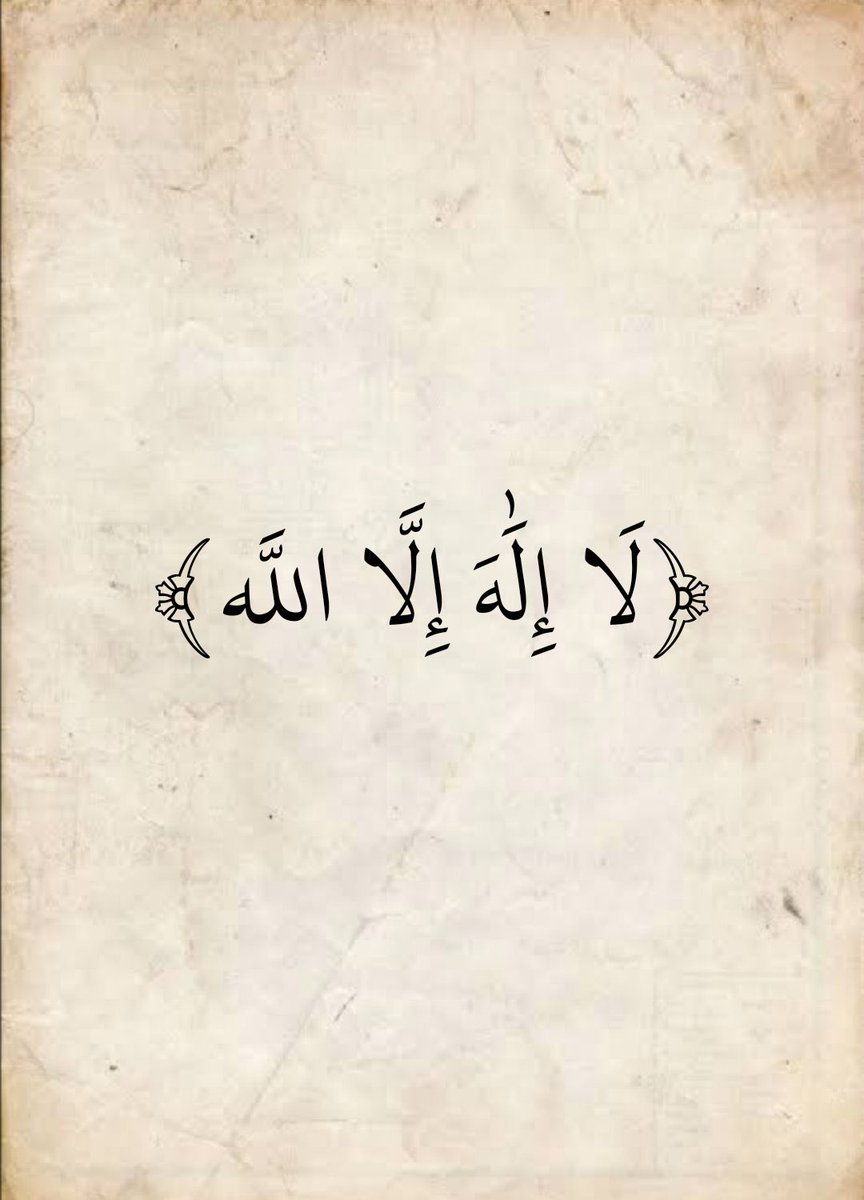 ﴿لَا إِلَٰهَ إِلَّا اللَّه﴾